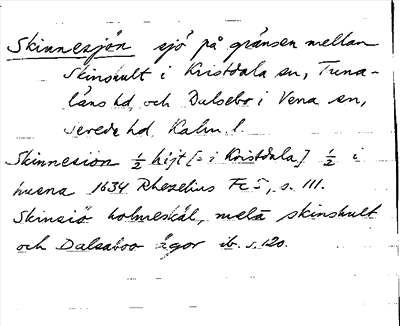 Skinnesjön sjö på gränsen mellan
Skinshult i Kristdala sn, Tuna-
läns hd, och Dalsebo i Vena sn,
Sevede hd. Kalm. l.
Skinnesion ½ hijt [= i Kristdala] ½ i
huena 1634 Rhezelius Fc 5, s. 111.
Skinsiö holmeskäl, mella skinshult
och Dalsaboo ägor ib. s. 120.